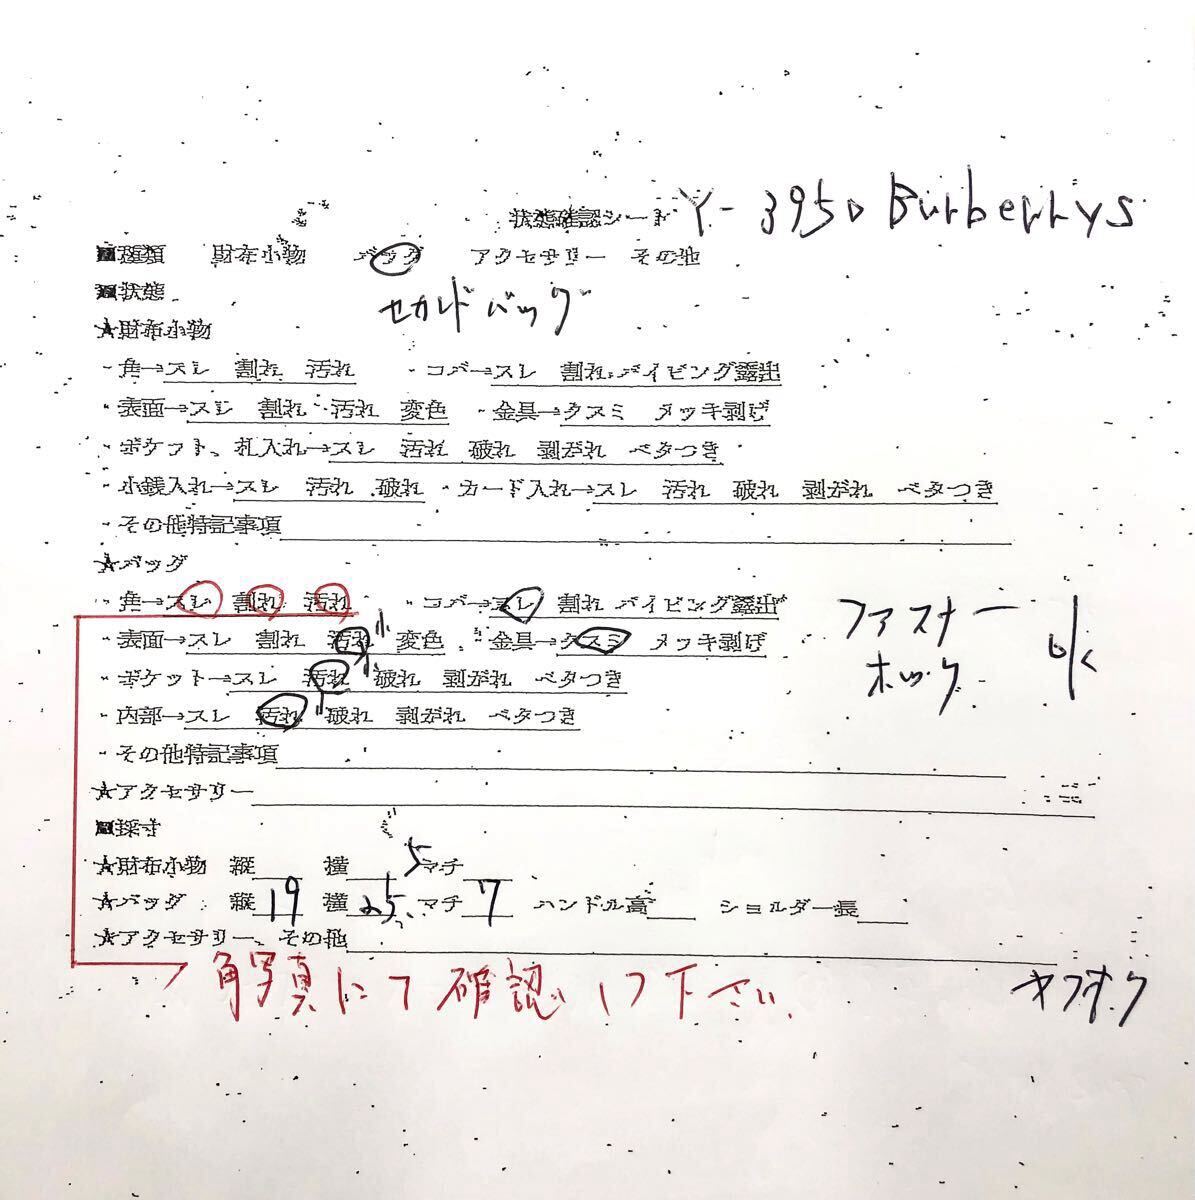 状態確認シート Y-3950 Burberrys
■種類 財布小物 バッグ アクセサリー その他
■状態 セカンドバッグ
★財布小物
・角→スレ 割れ 汚れ ・コバ→スレ 割れ パイピング露出
・表面→スレ 割れ 汚れ 変色 ・金具→クスミ メッキ剥げ
・ポケット、札入れ→スレ 汚れ 破れ 剥がれ ベタつき
・小銭入れ→スレ 汚れ 破れ ・カード入れ→スレ 汚れ 破れ 剥がれ ベタつき
・その他特記事項
★バッグ
・角→スレ 割れ 汚れ ・コバ→スレ 割れ パイピング露出
・表面→スレ 割れ 汚れ 小 変色 ・金具→クスミ メッキ剥げ
・ポケット→スレ 汚れ 破れ 剥がれ ベタつき
・内部→スレ 汚れ 破れ 剥がれ ベタつき
ファスナー
ホック
OK
・その他特記事項
★アクセサリー
■採寸
★財布小物 縦 横 マチ
★バッグ 縦 19 横 25.5 マチ 7 ハンドル高 ショルダー長
★アクセサリー、その他
角写真にて確認して下さい
ヤフオク